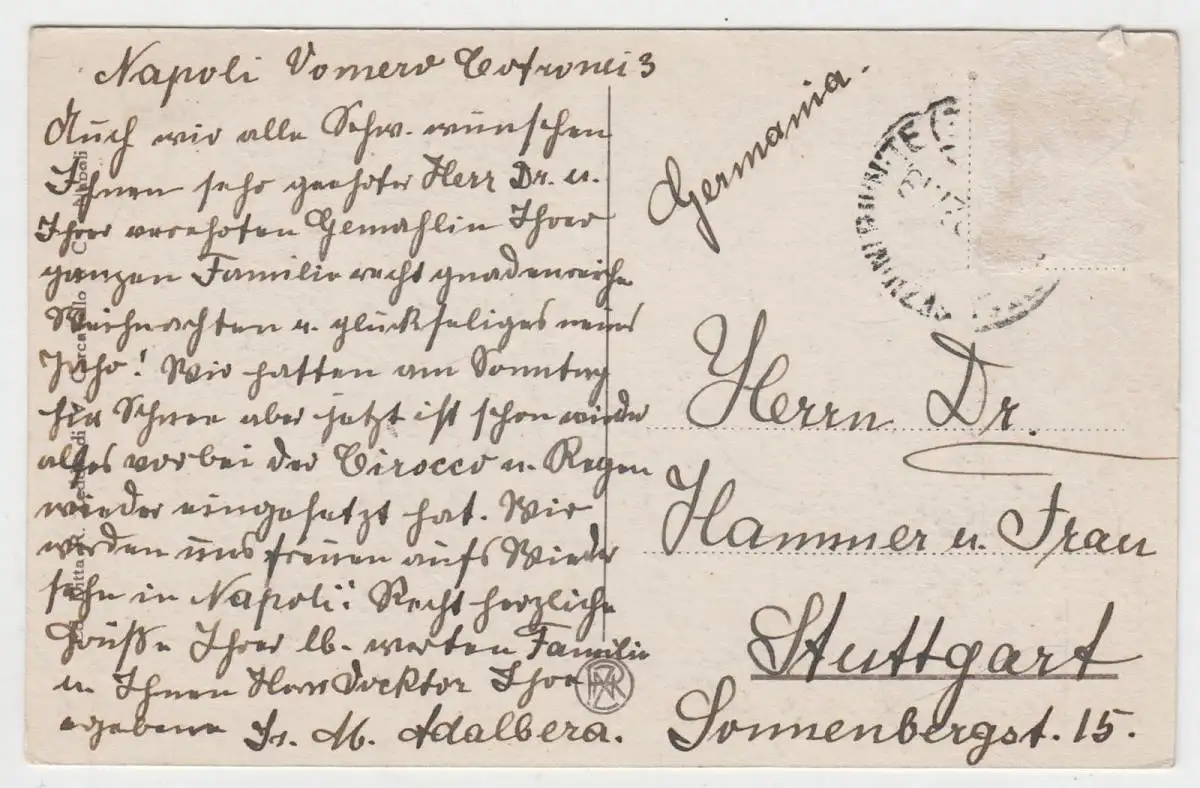 Napoli Vomero Cotronei 3
Auch wir alle Schw. wünschen
Ihnen sehr geehrter Herr Dr. u.
Ihrer verehrten Gemahlin Ihrer
ganzen Familie recht gnadenreiche
Weihnachten u. glückseliges neues
Jahr! Wir hatten am Sonntag
hier Schnee aber jetzt ist schon wieder
alles vorbei der Cirocco u. Regen
wieder eingesetzt hat. Wir
werden uns freuen aufs Wieder
sehn in Napoli! Recht herzliche
Grüsse Ihrer lb. werten Familie
u. Ihnen Herr Docktor Ihre
ergebene Sr. M. Adalbera.
Germania.
Herrn Dr.
Hammer u. Frau
Stuttgart
Sonnenbergst. 15.
Ditta R. Napoli